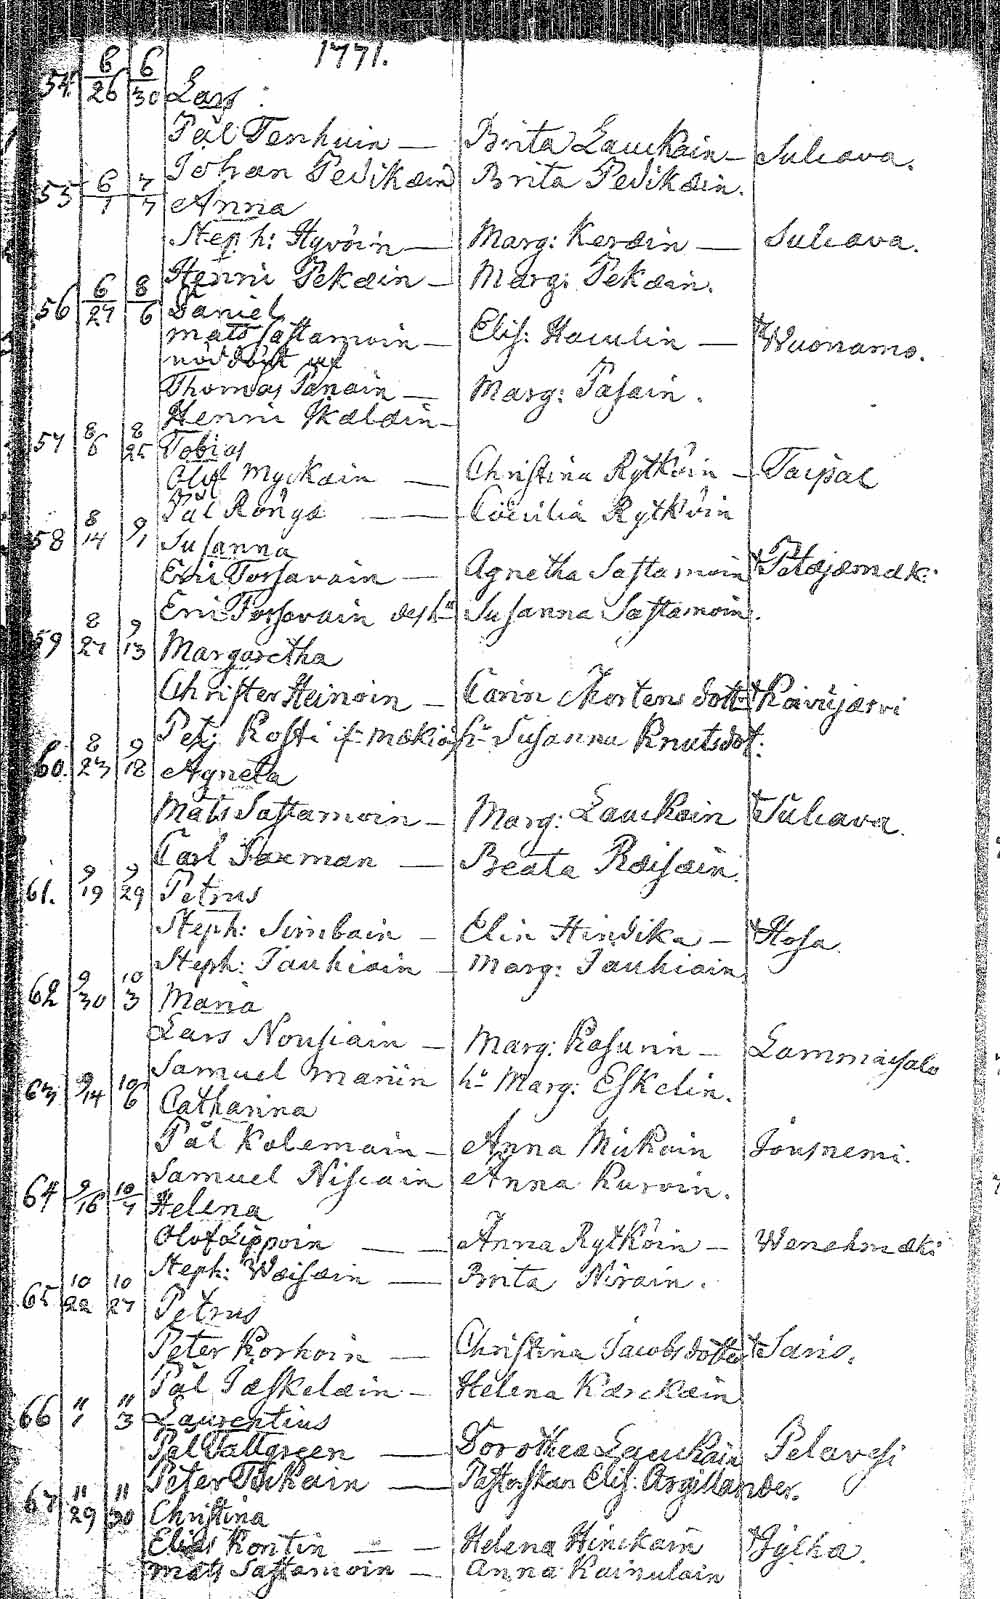 1771.
54. 6/26 6/30 Lars
Pål Tenhuin — Brita Lauckain — Sulcava.
Johan Pedikæin Brita Pedikæin.
55 6/1 7/7 Anna
Steph: Hyvöin — Marg: Keræin — Sulcava.
Henric Pekæin — Marg: Pekæin.
56 6/27 8/6 Daniel
Mats Sastamoin — Elis: Haculin — Wuonamo.
nöddöpt af
Thomas Panain — Marg: Pasain.
Henric Ikælæin —
57 8/6 8/25 Tobias
Oluf Myckæin — Christina Rytköin — Taipal
Pål Röngä — — Cæcilia Rytköin
58 8/14 9/1 Susanna
Eric Torsavain — Agnetha Sastamoin Petäjæmäk:
Eric Torsavain des hu Susanna Sastamoin.
59 8/27 9/13 Margaretha
Christer Heinoin — Carin Mortensdott: Koivujærvi
Pet: Kosti hu Susanna Knutsdot:
60. 8/23 9/18 Agneta
Mats Sastamoin — Marg: Lauckain Sulcava.
Carl Saxman — Beata Ræisæin.
61. 9/19 9/29 Petrus
Steph: Simbain — Elin Hindika — Hosa.
Steph: Jauhiain — Marg: Jauhiain
62 9/30 10/3 Maria
Lars Nousiain — Marg: Kasurin — Lammaisalo
Samuel Manin hu Marg: Eskelin.
63 9/14 10/6 Catharina
Pål Kolemain — Anna Mickoin Jousnemi.
Samuel Niscain Anna Kurvin.
64 9/16 10/7 Helena
Olof Lippoin — — Anna Rytköin — Wenehmæki
Steph: Wæisæin — Brita Nirain.
65 10/22 10/27 Petrus
Peter Korhoin — Christina Jacobsdotter Saris.
Pål Jæskelæin — Helena Kærckæin
66 11/1 11/3 Laurentius
Pål Tallgreen — Dorothea Lauckain Pelavesi
Peter Pukain — Pastorskan Elis: Argillander.
67 11/29 11/30 Christina
Elias Kontin — — Helena Hinckain Jylhä.
Mats Sastamoin — Anna Kainulain